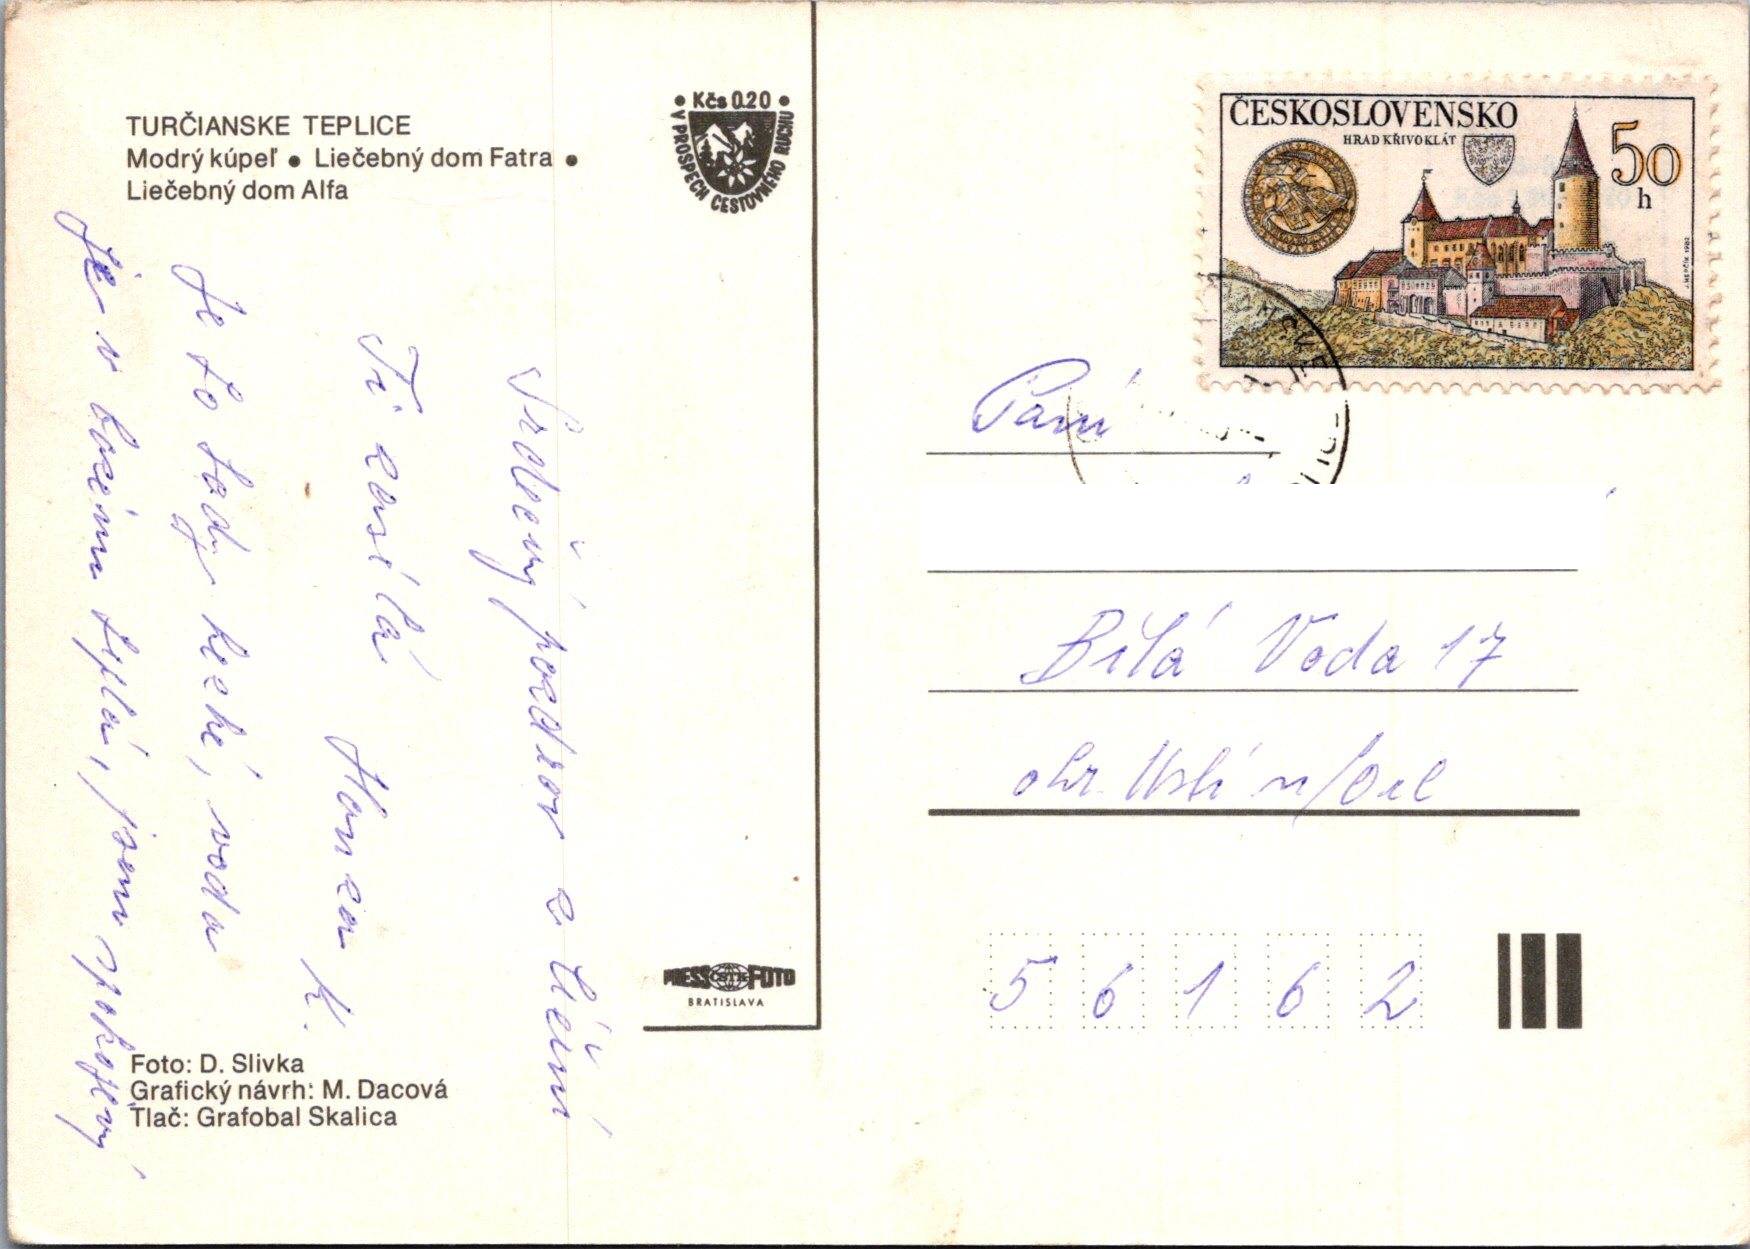 TURČIANSKE TEPLICE
Modrý kúpeľ • Liečebný dom Fatra •
Liečebný dom Alfa
• Kčs 0.20 •
V PROSPECH CESTOVNÉHO RUCHU
Srdečný pozdrav z léčení
Ti zasílá Honza K.
Je to tady hezké, voda
je v bazénu teplá, jsem spokojený
PRESSFOTO
ČSTK
BRATISLAVA
Foto: D. Slivka
Grafický návrh: M. Dacová
Tlač: Grafobal Skalica
ČESKOSLOVENSKO
HRAD KŘIVOKLÁT
50
h
Paní
Bílá Voda 17
okr. Ústí n/Orl
56162